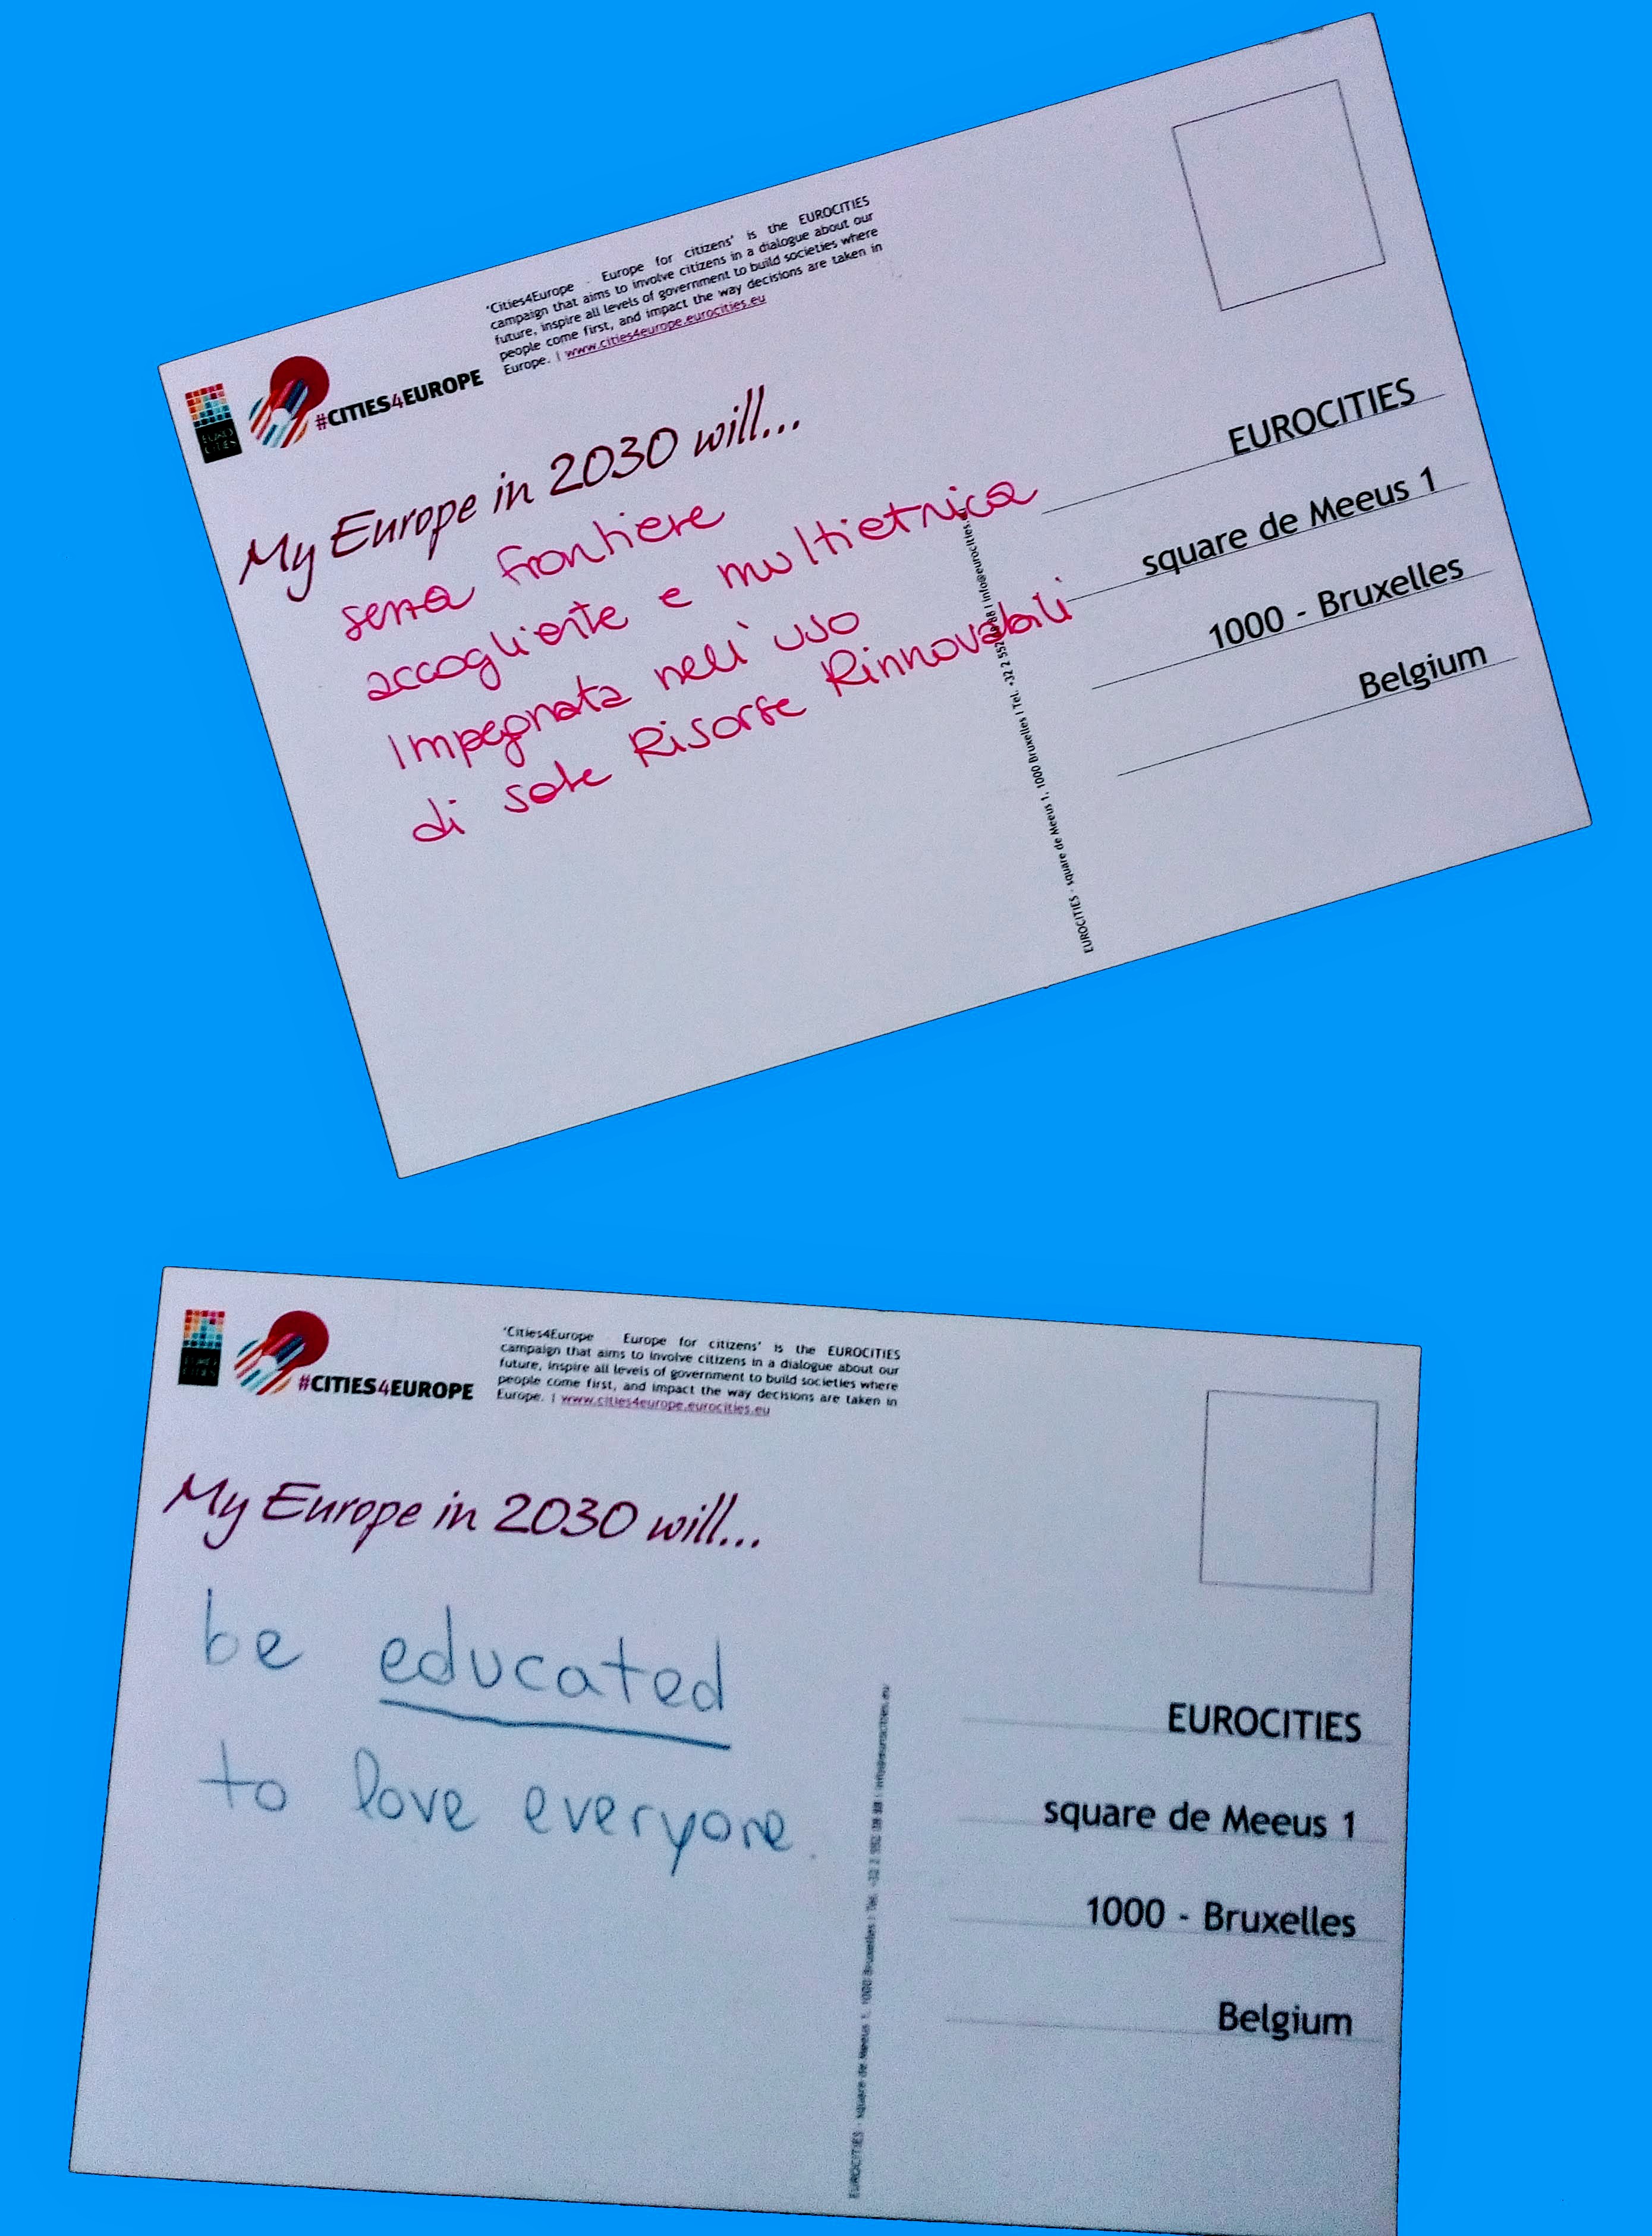 EURO
CITIES
#CITIES4EUROPE
'Cities4Europe - Europe for citizens' is the EUROCITIES
campaign that aims to involve citizens in a dialogue about our
future, inspire all levels of government to build societies where
people come first, and impact the way decisions are taken in
Europe. | www.cities4europe.eurocities.eu
My Europe in 2030 will...
senza frontiere
accogliente e multietnica
Impegnata nell'uso
di sole Risorse Rinnovabili
EUROCITIES - square de Meeus 1, 1000 Bruxelles | Tel. +32 2 552 88 | info@eurocities.
EUROCITIES
square de Meeus 1
1000 - Bruxelles
Belgium
EURO
CITIES
#CITIES4EUROPE
'Cities4Europe - Europe for citizens' is the EUROCITIES
campaign that aims to involve citizens in a dialogue about our
future, inspire all levels of government to build societies where
people come first, and impact the way decisions are taken in
Europe. | www.cities4europe.eurocities.eu
My Europe in 2030 will...
be educated
to love everyone.
EUROCITIES - square de Meeus 1, 1000 Bruxelles | Tel. +32 2 552 | info@eurocities.eu
EUROCITIES
square de Meeus 1
1000 - Bruxelles
Belgium